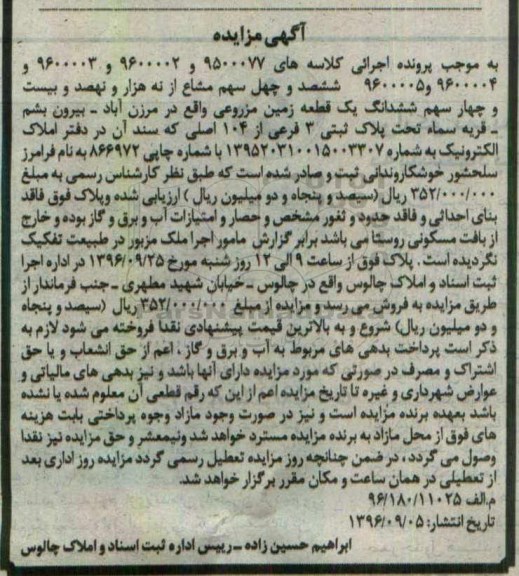 آگهی مزایده
به موجب پرونده اجرائی کلاسه های ۹۵۰۰۰۷۷ و ۹۶۰۰۰۰۲ و ۹۶۰۰۰۰۳ و
۹۶۰۰۰۰۴ و۹۶۰۰۰۰۵ ششصد و چهل سهم مشاع از نه هزار و نهصد و بیست
و چهار سهم ششدانگ یک قطعه زمین مزروعی واقع در مرزن آباد ـ بیرون بشم
ـ قریه سماء تحت پلاک ثبتی ۳ فرعی از ۱۰۴ اصلی که سند آن در دفتر املاک
الکترونیک به شماره ۱۳۹۵۲۰۳۱۰۰۱۵۰۰۳۳۰۷ با شماره چاپی ۸۶۶۹۷۲ به نام فرامرز
سلحشور خوشکاروندانی ثبت و صادر شده است که طبق نظر کارشناس رسمی به مبلغ
۳۵۲/۰۰۰/۰۰۰ ریال (سیصد و پنجاه و دو میلیون ریال ) ارزیابی شده وپلاک فوق فاقد
بنای احداثی و فاقد حدود و ثغور مشخص و حصار و امتیازات آب و برق و گاز بوده و خارج
از بافت مسکونی روستا می باشد برابر گزارش مامور اجرا ملک مزبور در طبیعت تفکیک
نگردیده است . پلاک فوق از ساعت ۹ الی ۱۲ روز شنبه مورخ ۱۳۹۶/۰۹/۲۵ در اداره اجرا
ثبت اسناد و املاک چالوس واقع در چالوس ـ خیابان شهید مطهری ـ جنب فرماندار از
طریق مزایده به فروش می رسد و مزایده از مبلغ ۳۵۲/۰۰۰/۰۰۰ ریال (سیصد و پنجاه
و دو میلیون ریال) شروع و به بالاترین قیمت پیشنهادی نقدا فروخته می شود لازم به
ذکر است پرداخت بدهی های مربوط به آب و برق و گاز ، اعم از حق انشعاب و یا حق
اشتراک و مصرف در صورتی که مورد مزایده دارای آنها باشد و نیز بدهی های مالیاتی و
عوارض شهرداری و غیره تا تاریخ مزایده اعم از این که رقم قطعی آن معلوم شده یا نشده
باشد بعهده برنده مزایده است و نیز در صورت وجود مازاد وجوه پرداختی بابت هزینه
های فوق از محل مازاد به برنده مزایده مسترد خواهد شد ونیمعشر و حق مزایده نیز نقدا
وصول می گردد، در ضمن چنانچه روز مزایده تعطیل رسمی گردد مزایده روز اداری بعد
از تعطیلی در همان ساعت و مکان مقرر برگزار خواهد شد.
م.الف ۹۶/۱۸۰/۱۱۰۲۵
تاریخ انتشار: ۱۳۹۶/۰۹/۰۵
ابراهیم حسین زاده ـ رییس اداره ثبت اسناد و املاک چالوس